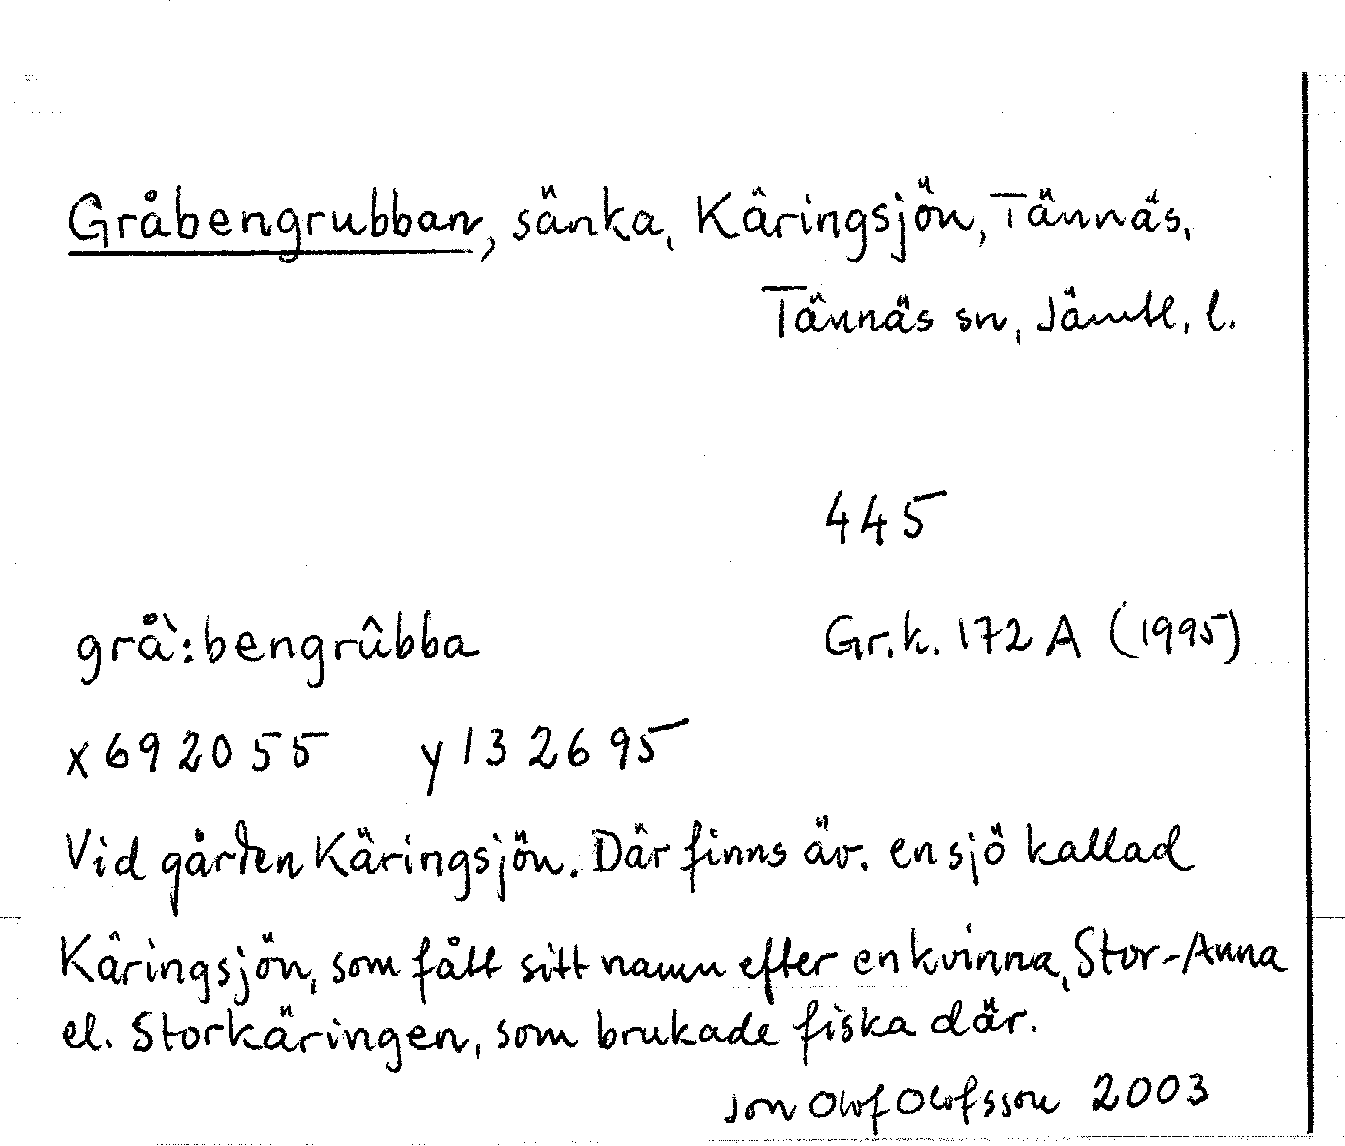 Gråbengrubban, sänka, Käringsjön, Tännäs,
Tännäs sn, Jämtl. l.
445
grå̀:bengrûbba Gr.k. 172 A (1995)
x 692055 y 132695
Vid gården Käringsjön. Där finns äv. en sjö kallad
Käringsjön, som fått sitt namn efter en kvinna, Stor-Anna
el. Storkäringen, som brukade fiska där.
Jon Olof Olofsson 2003